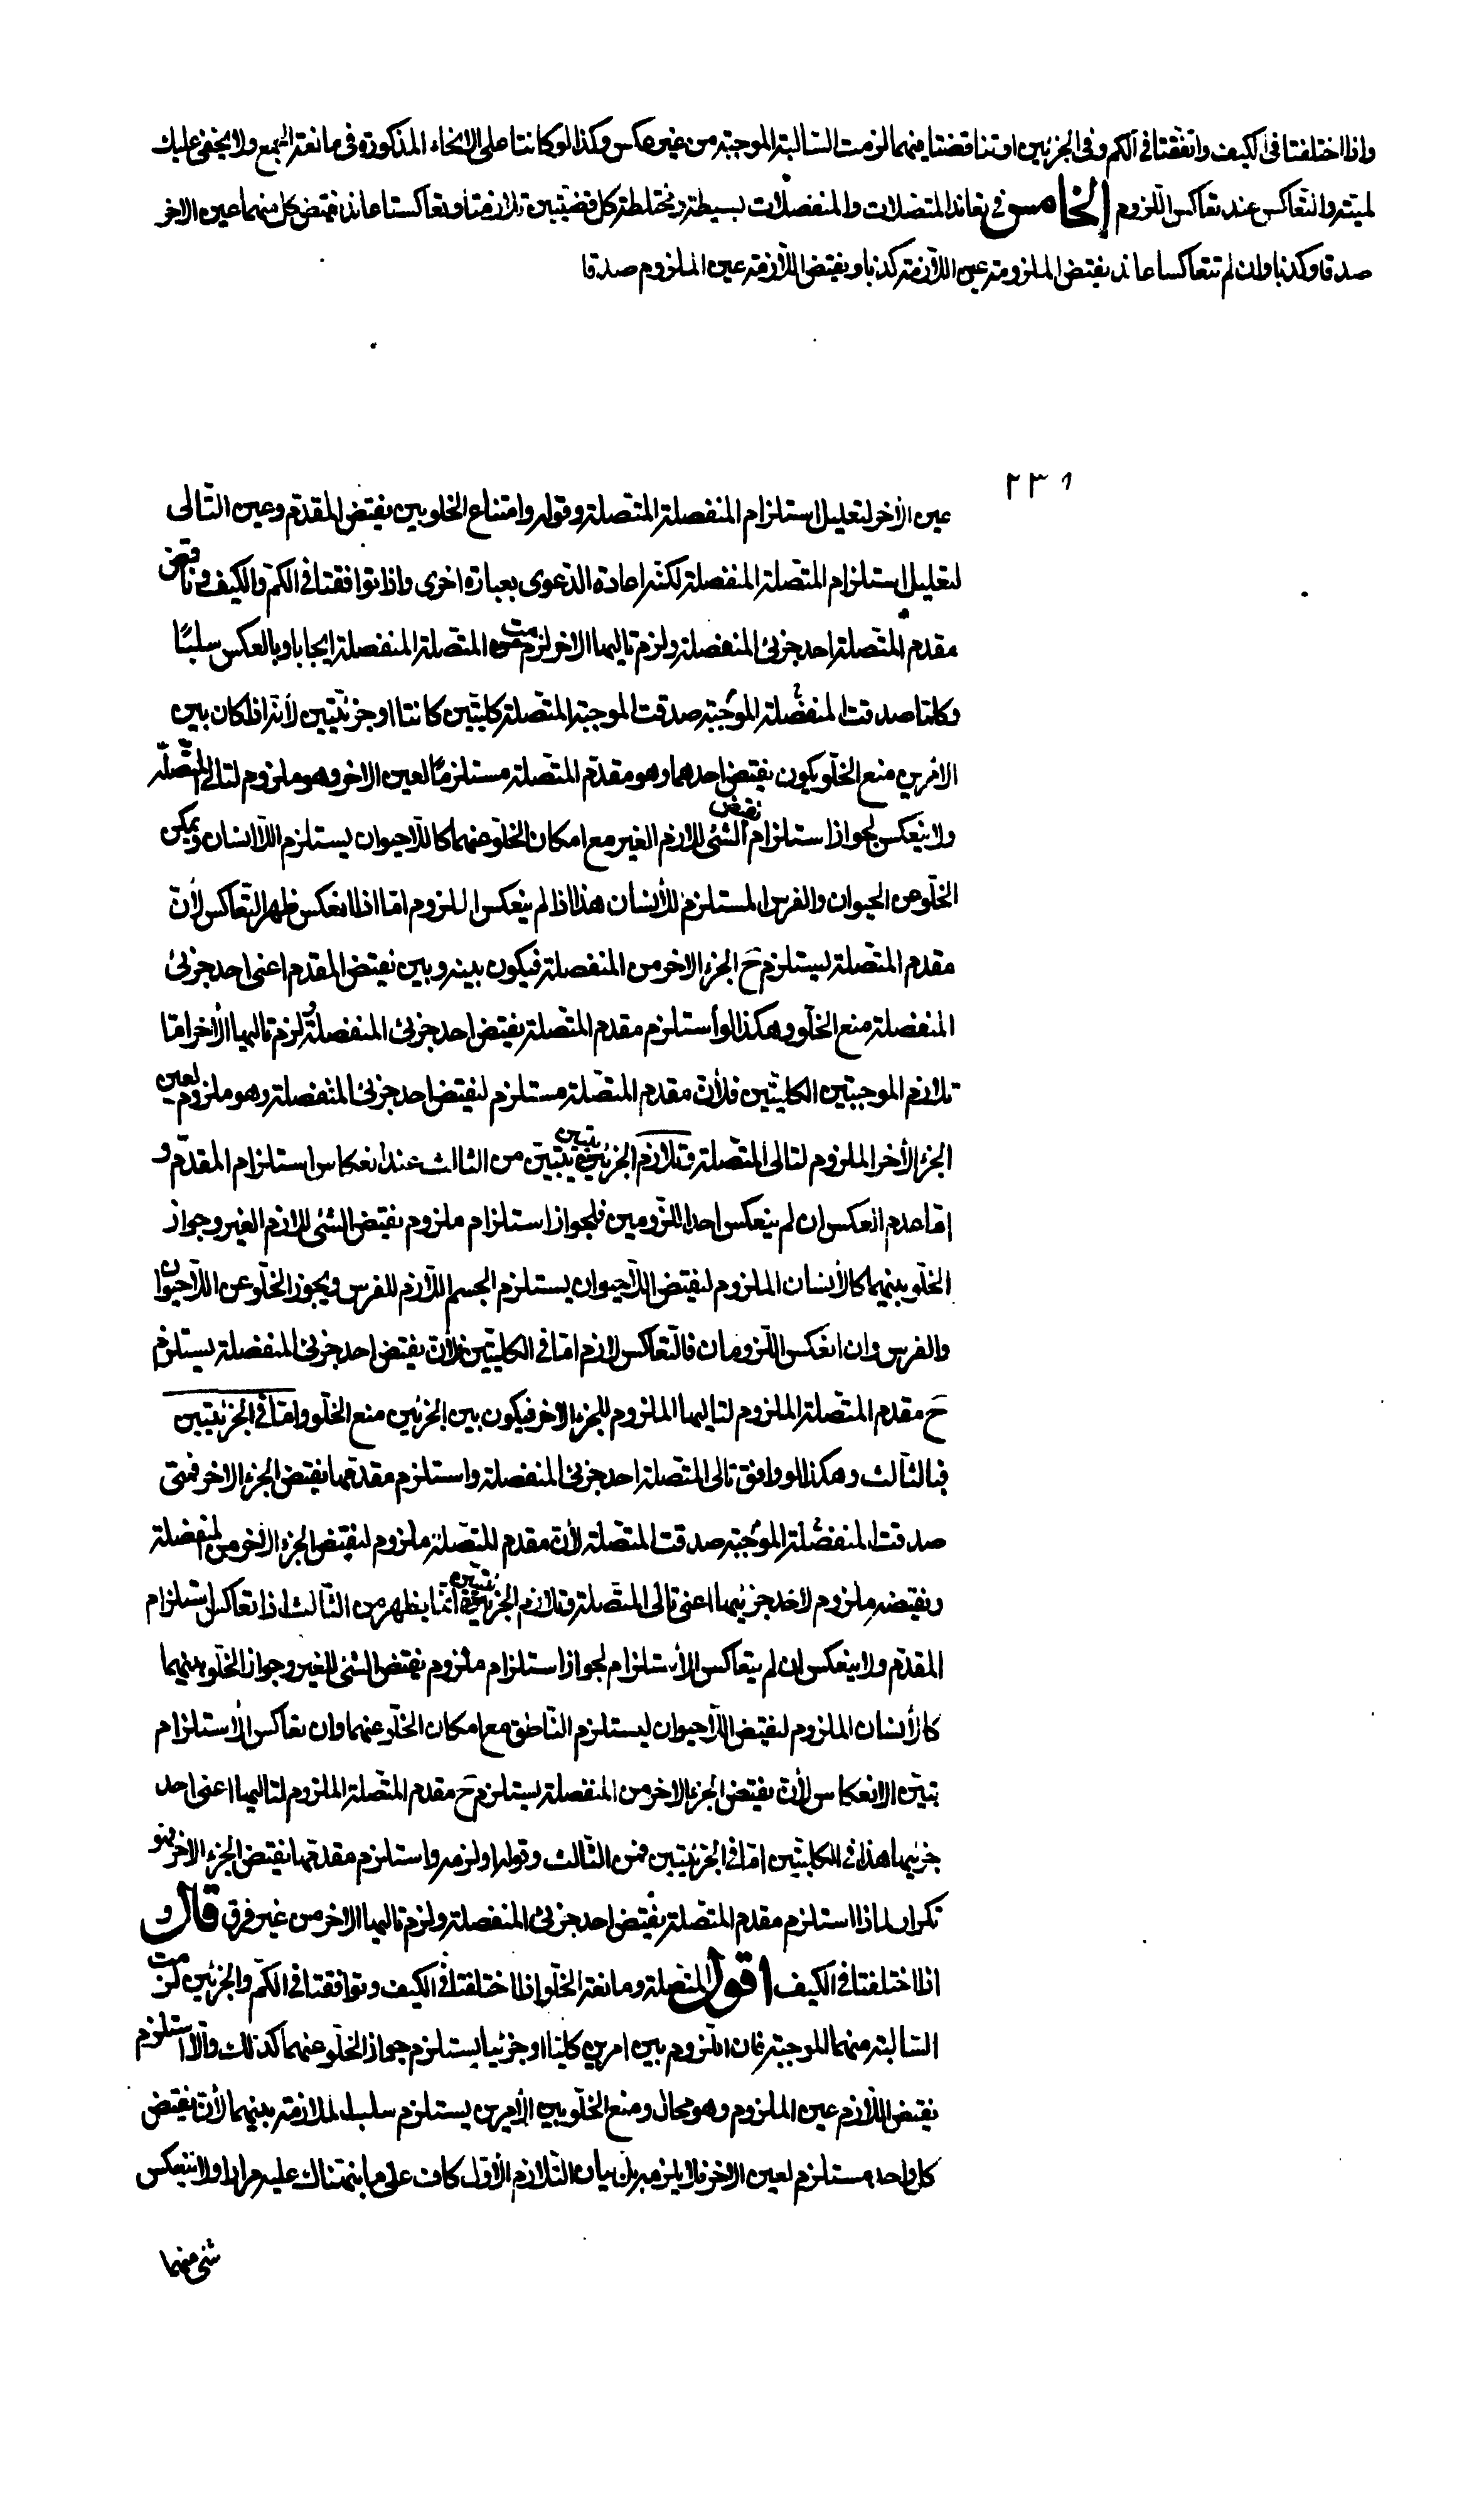 واذا اختلفتا فى الكيف واتفقتا فى الكم وفى الجزئين او تناقضتا فيهما لزمت السالبة الموجبة من غير عكس وكذا لو كانتا على الانحاء المذكورة فى مانعة الجمع ولا يخفى عليك
لميته والتعاكس عند تعاكس اللزوم الخامس فى تعاند المتصلات والمنفصلات بسيطة ومختلطة كل قضيتين تلازمتا وتعاكستا عاند نقيض كل منهما عين الاخر
صدقا وكذبا وان لم تتعاكسا عاند نقيض الملزومة عين اللازمة كذبا ونقيض اللازمة عين الملزوم صدقا
٢٣١
عين الاخر لتعليل استلزام المنفصلة المتصلة وقوله وامتناع الخلو بين نقيض المقدم وعين التالى
لتعليل استلزام المتصلة المنفصلة لكنه اعادة الدعوى بعبارة اخرى واذا توافقتا فى الكم والكيف وناقض
مقدم المتصلة احد جزئى المنفصلة ولزم تاليها الاخر لزمت المتصلة المنفصلة ايجابا وبالعكس سلبا
فكلما صدقت المنفصلة الموجبة صدقت الموجبة المتصلة كليتين كانتا او جزئيتين لانه اذا كان بين
الامرين منع الخلو يكون نقيض احدهما وهو مقدم المتصلة مستلزما لعين الاخر وهو ملزوم لتالى المتصلة
ولا ينعكس لجواز استلزام نقيض الشئ للازم الغير مع امكان الخلو عنهما كاللاحيوان يستلزم اللاانسان ويمكن
الخلو عن الحيوان والفرس المستلزم للاانسان هذا اذا لم ينعكس اللزوم اما اذا انعكس ظهر التعاكس لان
مقدم المتصلة يستلزم ح الجزء الاخر من المنفصلة فيكون بينه وبين نقيض المقدم اعنى احد جزئى
المنفصلة منع الخلو وهكذا لو استلزم مقدم المتصلة نقيض احد جزئى المنفصلة ولزم تاليها الاخر اما
تلازم الموجبتين الكليتين فلان مقدم المتصلة مستلزم لنقيض احد جزئى المنفصلة وهو ملزوم لعين
الجزء الاخر الملزوم لتالى المتصلة وتلازم الجزئيتين يتبين من الثالث عند انعكاس استلزام المقدم و
اما عدم العكس ان لم ينعكس احد اللزومين فلجواز استلزام ملزوم نقيض الشئ للازم الغير وجواز
الخلو بينهما كالانسان الملزوم لنقيض اللاحيوان يستلزم الجسم اللازم للفرس ويجوز الخلو عن اللاحيوان
والفرس وان انعكس اللزومان فالتعاكس لازم اما فى الكليتين فلان نقيض احد جزئى المنفصلة يستلزم
ح مقدم المتصلة الملزوم لتاليها الملزوم للجزء الاخر فيكون بين الجزئين منع الخلو واما فى الجزئيتين
فبالثالث وهكذا لو وافق تالى المتصلة احد جزئى المنفصلة واستلزم مقدمها نقيض الجزء الاخر فمتى
صدقت المنفصلة الموجبة صدقت المتصلة لان مقدم المتصلة ملزوم لنقيض الجزء الاخر من المنفصلة
ونقيضه ملزوم لاحد جزئيها اعنى تالى المتصلة وتلازم الجزئيتين انما يظهر من الثالث اذا تعاكس استلزام
المقدم ولا ينعكس ان لم يتعاكس الاستلزام لجواز استلزام ملزوم نقيض الشئ للغير وجواز الخلو بينهما
كالانسان الملزوم لنقيض اللاحيوان يستلزم الناطق مع امكان الخلو عنهما وان تعاكس الاستلزام
تبين الانعكاس لان نقيض الجزء الاخر من المنفصلة يستلزم ح مقدم المتصلة الملزوم لتاليها اعنى احد
جزئيها هذا فى الكليتين اما فى الجزئيتين فمن الثالث وقوله او لزمه واستلزم مقدمها نقيض الجزء الاخر فهو
تكرار لما اذا استلزم مقدم المتصلة نقيض احد جزئى المنفصلة ولزم تاليها الاخر من غير فرق قال و
اذا اختلفتا فى الكيف اقول المتصلة ومانعة الخلو اذا اختلفتا فى الكيف وتوافقتا فى الكم والجزئين لزمت
السالبة منهما الموجبة فان اللزوم بين امرين كليا او جزئيا يستلزم جواز الخلو عنهما كذلك والا استلزم
نقيض اللازم عين الملزوم وهو محال ومنع الخلو بين الامرين يستلزم سلب الملازمة بينهما لان نقيض
كل واحد مستلزم لعين الاخر فلا يلزمه بل بيان التلازم الاول كاف على ما نبهناك عليه مرارا ولا ينعكس
شئ منهما